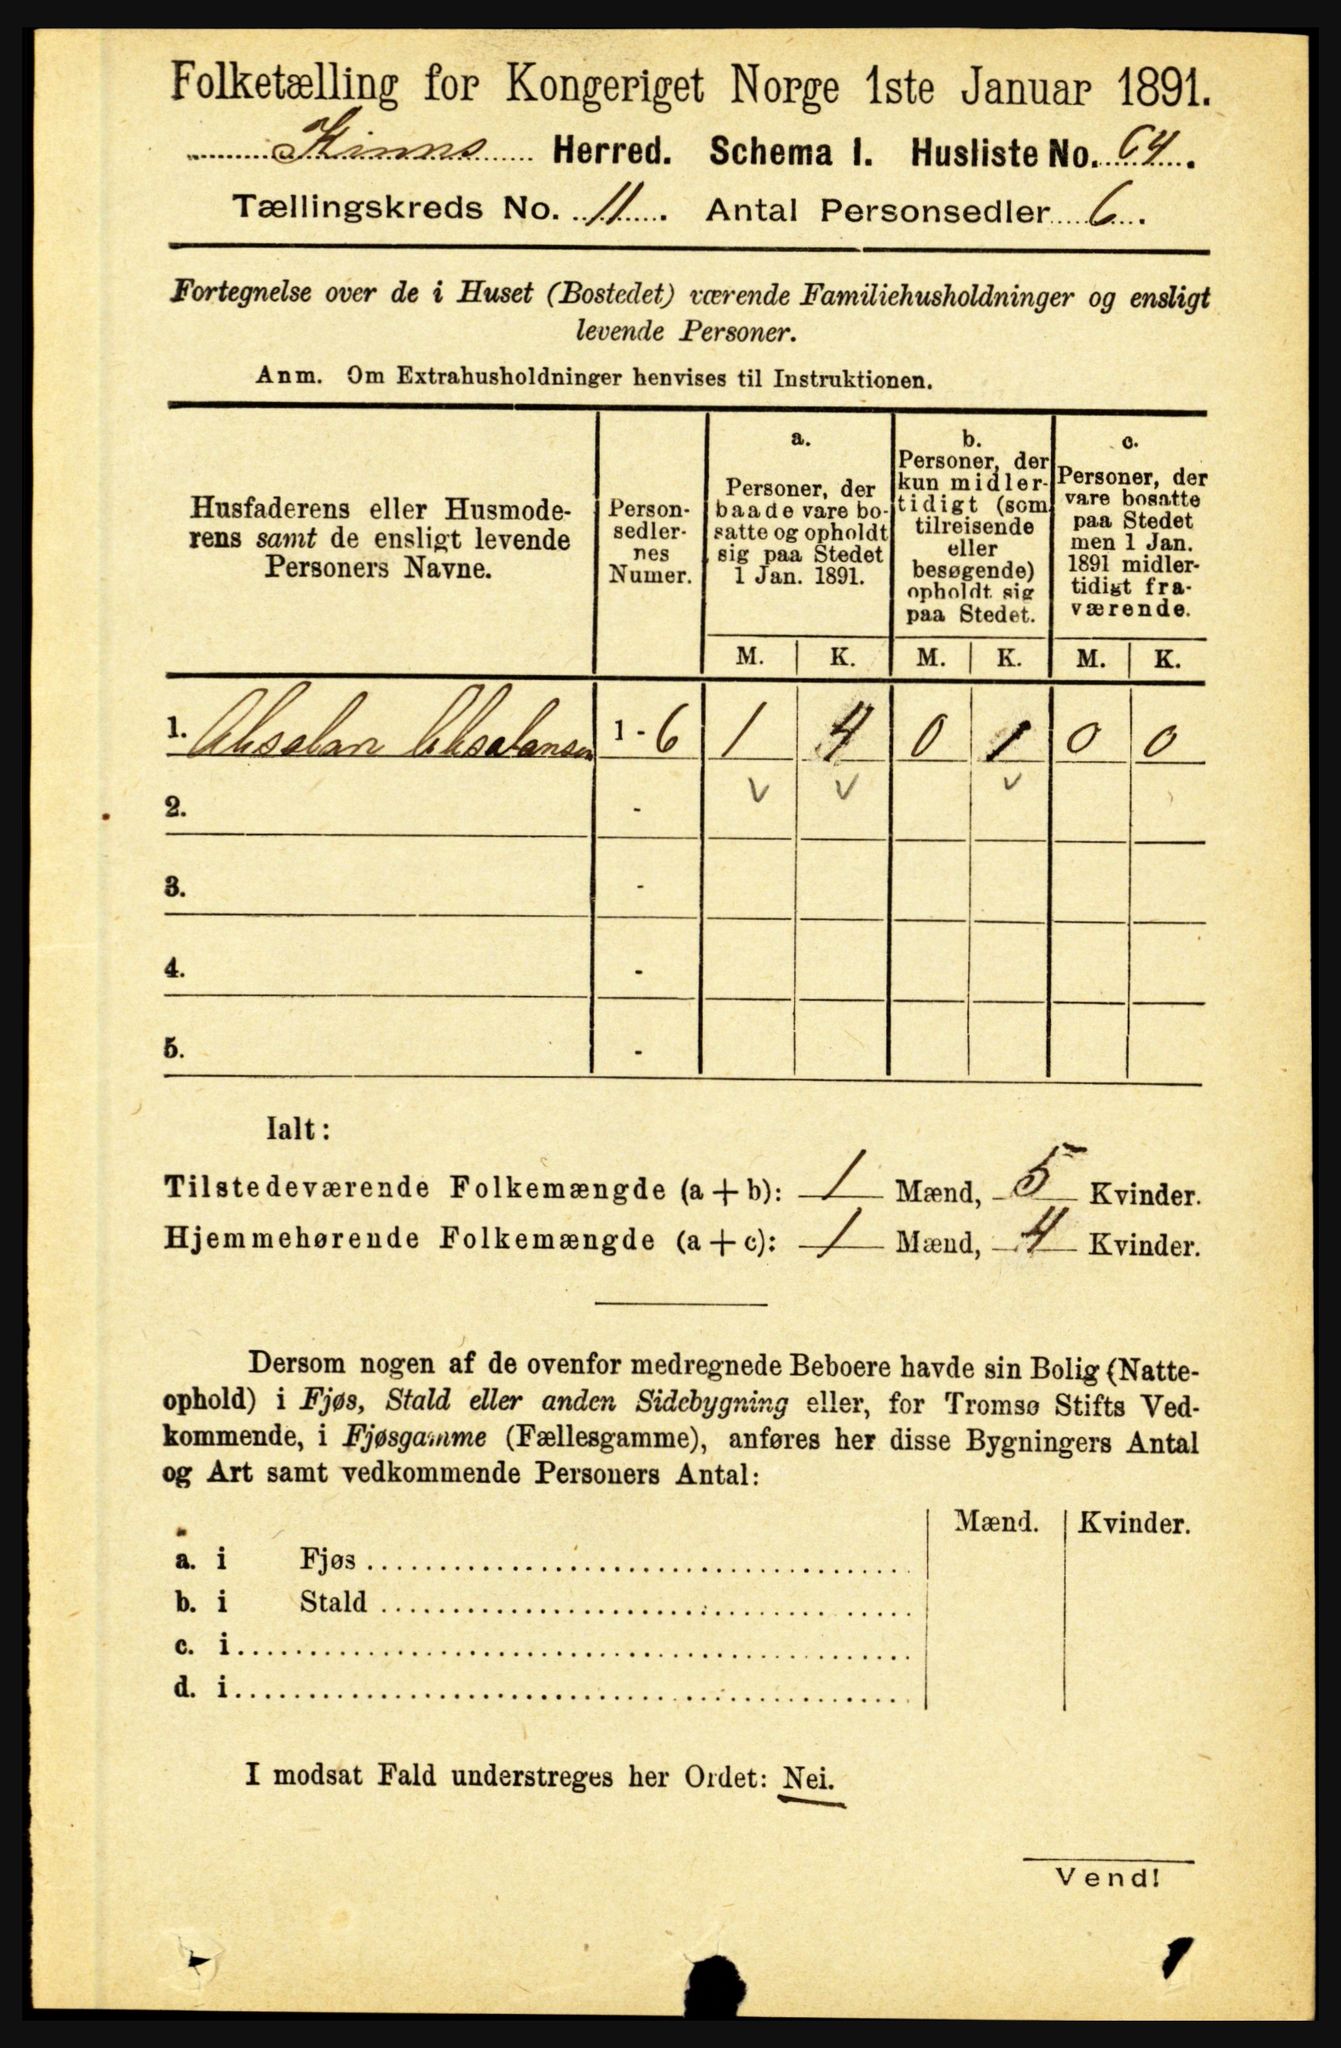 Folketælling for Kongeriget Norge 1ste Januar 1891.
Kinns Herred. Schema I. Husliste No. 64.
Tællingskreds No. 11. Antal Personsedler 6.
Fortegnelse over de i Huset (Bostedet) værende Familiehusholdninger og ensligt
levende Personer.
Anm. Om Extrahusholdninger henvises til Instruktionen.
Husfaderens eller Husmode-
rens samt de ensligt levende
Personers Navne.
Person-
sedler-
nes
Numer.
a.
Personer, der
baade vare bo-
satte og opholdt
sig paa Stedet
1 Jan. 1891.
b.
Personer, der
kun midler-
tidigt (som
tilreisende
eller
besøgende)
opholdt sig
paa Stedet.
c.
Personer, der
vare bosatte
paa Stedet
men 1 Jan.
1891 midler-
tidigt fra-
værende.
M. K. M. K. M. K.
1. Absalon Absalonsen 1 - 6 1 4 0 1 0 0
2. -
3. -
4. -
5. -
Ialt:
Tilstedeværende Folkemængde (a + b): 1 Mænd, 5 Kvinder.
Hjemmehørende Folkemængde (a + c): 1 Mænd, 4 Kvinder.
Dersom nogen af de ovenfor medregnede Beboere havde sin Bolig (Natte-
ophold) i Fjøs, Stald eller anden Sidebygning eller, for Tromsø Stifts Ved-
kommende, i Fjøsgamme (Fællesgamme), anføres her disse Bygningers Antal
og Art samt vedkommende Personers Antal:
Mænd. Kvinder.
a. i Fjøs
b. i Stald
c. i
d. i
I modsat Fald understreges her Ordet: Nei.
Vend!